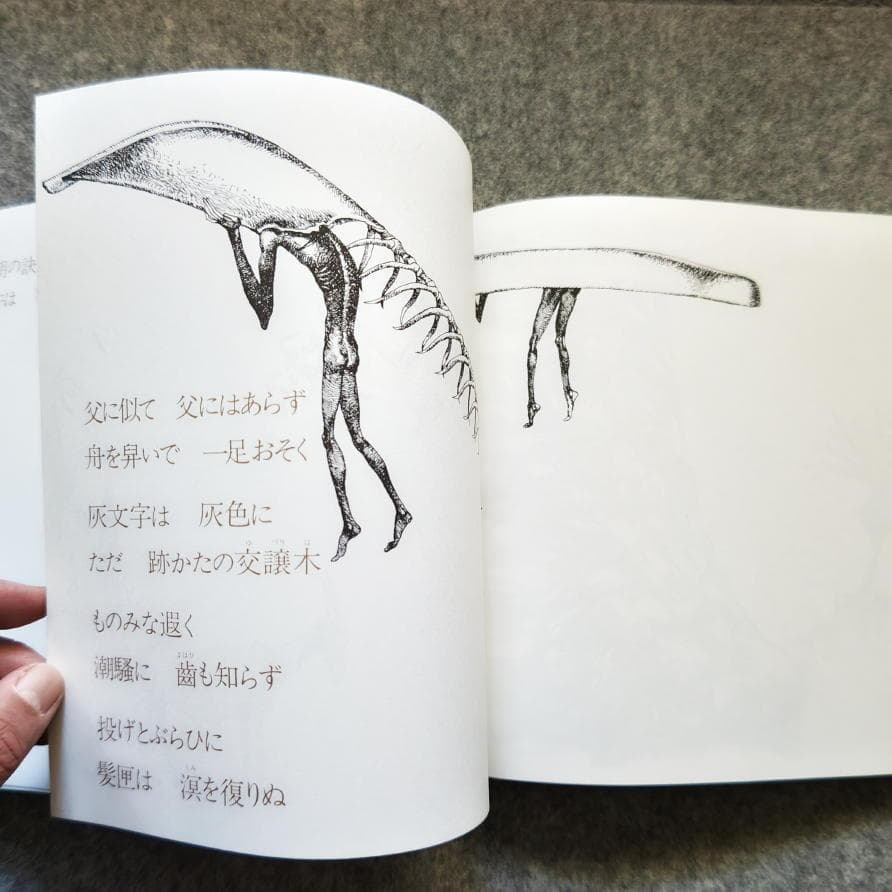 父に似て　父にはあらず
舟を舁いで　一足おそく
灰文字は　灰色に
ただ　跡かたの交譲木
ものみな遐く
潮騒に　齒も知らず
投げとぶらひに
髪匣は　溟を復りぬ